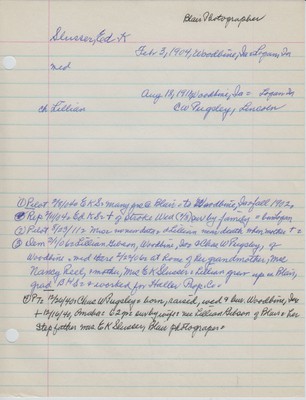 Blair Photographer
Slusser, Ed. K
Feb 3, 1904, Woodbine, Ia = Logan, Ia
med
Aug 18, 1911, Woodbine, Ia = Logan Ia
ch Lillian C W Pugsley, Lincoln
① Pilot 2/9/04 E K S = many yrs @ Blair = to Woodbine, Ia fall 1902,
Rep 2/9/04 Ed K S = + of stroke Wed (2/3) sur by family = bur Logan
② Pilot 8/23/11 Mrs = Lillian death when mother + =
③ Dem 2/1/06 Lillian Gibson, Woodbine, Ia & Clyde W Pugsley, of
Woodbine = med there at home of her grandmother, Mrs
Nancy Reel, = mother, Mrs E K Slusser = Lillian grew up in Blair,
grad BHS = + worked for Haller Prop. Co =
① PT 12/24/40 Clyde W Pugsley = born, raised, wed & bur. Woodbine, Ia
+ 12/16/41, Omaha = 62 yr = sur by wife = nee Lillian Gibson of Blair = her
step father was E K Slusser, Blair photographer =